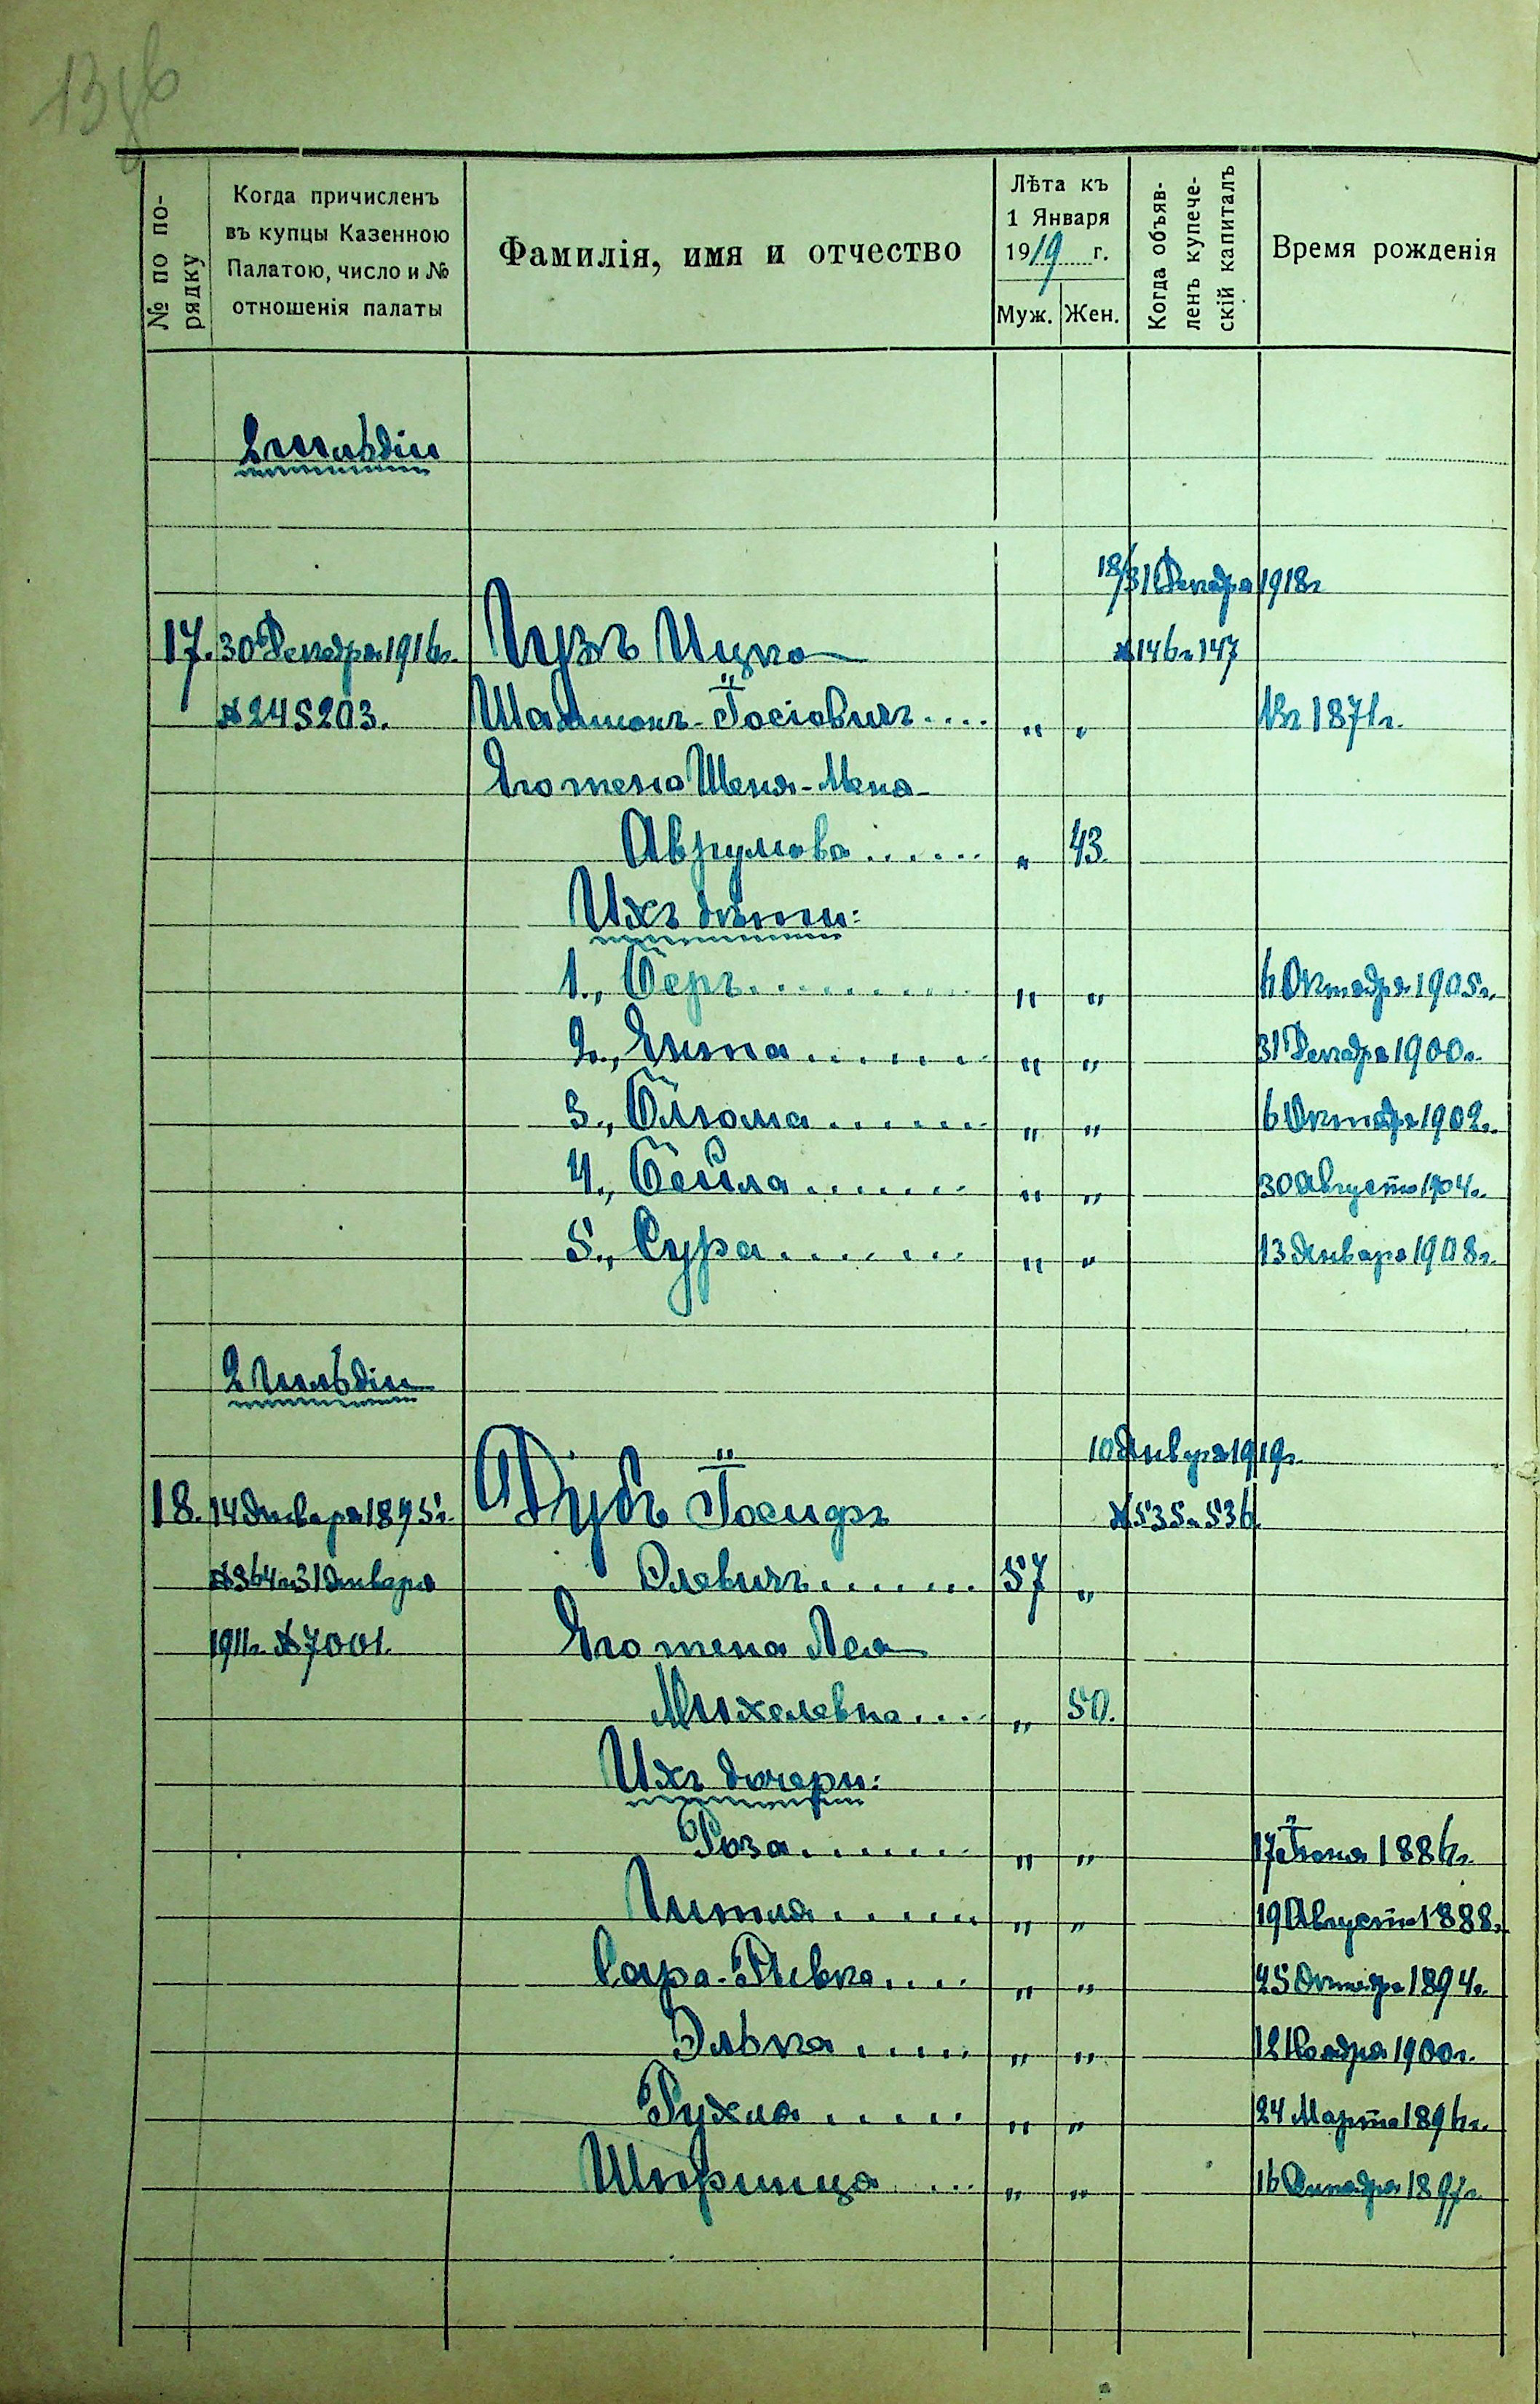 № по по-
рядку
Когда причисленъ
въ купцы Казенною
Палатою, число и №
отношенія палаты
Фамилія, имя и отчество
Лѣта къ
1 Января
1919 г.
Муж. Жен.
Когда объяв-
ленъ купече-
скій капиталъ
Время рожденія
2 гильдіи
18/31 Декабря 1918 г.
17. 30 Декабря 1916 г. Гузъ Ицко № 146 и 147
№ 245203. Иосіовичъ .... " " Въ 1871 г.
Его жена Шеня-
Аврумова ...... " 43.
Ихъ дѣти:
1., Беръ .......... " " 6 Октября 1905 г.
2., ....... " " 31 Декабря 1900 г.
3., Блюма ....... " " 6 Октября 1902 г.
4., Бейла ....... " " 30 Августа 1904 г.
5., Сура ....... " " 13 Января 1908 г.
2 гильдіи
10 Января 1919 г.
18. 14 Января 1895 г. Дубъ Іосифъ № 535 и 536.
№ 364 и 31 Января Элевичъ ....... 57 "
1911 г. № 7001. Его жена Лея
Михелевна .... " 50.
Ихъ дочери:
Роза ...... " " 17 Іюня 1886 г.
Гитля ...... " " 19 Августа 1888 г.
Сара-Ривка .... " " 25 Октября 1894 г.
Элька ..... " " 12 Ноября 1900 г.
Рухля ..... " " 24 Марта 1896 г.
Шпринца .... " " 16 Декабря 1897 г.